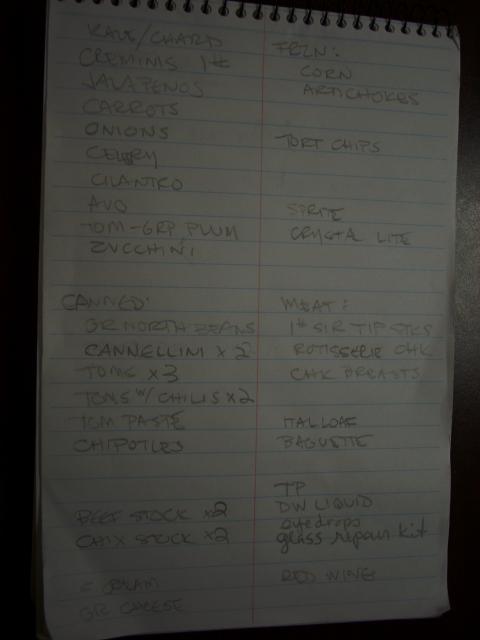 KALE/CHARD
CREMINIS 1#
JALAPENOS
CARROTS
ONIONS
CELERY
CILANTRO
AVO
TOM-GRP PLUM
ZUCCHINI
CANNED:
GR NORTH BEANS
CANNELLINI x 2
TOMS x 3
TOMS W/ CHILIS x 2
TOM PASTE
CHIPOTLES
BEEF STOCK x2
CHIX STOCK x2
CREAM
GR CHEESE
FRZN:
CORN
ARTICHOKES
TORT CHIPS
SPRITE
CRYSTAL LITE
MEAT:
1# SIR TIP STKS
ROTISSERIE CHK
CHK BREASTS
ITAL LOAF
BAGUETTE
TP
DW LIQUID
eyedrops
glass repair kit
RED WINE